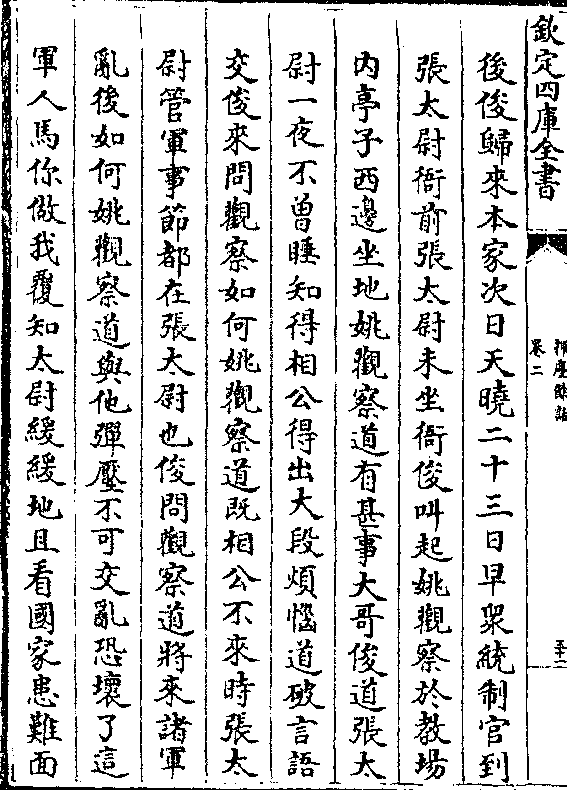 欽定四庫全書
揮麈餘話
卷二
後俊歸來本家次日天曉二十三日早衆統制官到
張太尉衙前張太尉未坐衙俊叫起姚觀察於教場
内亭子西邊坐地姚觀察道有甚事大哥俊道張太
尉一夜不曾睡知得相公得出大段煩惱道破言語
交俊來問觀察如何姚觀察道既相公不來時張太
尉管軍事節都在張太尉也俊問觀察道將來諸軍
亂後如何姚觀察道與他彈壓不可交亂恐壞了這
軍人馬你做我覆知太尉緩緩地且看國家患難面